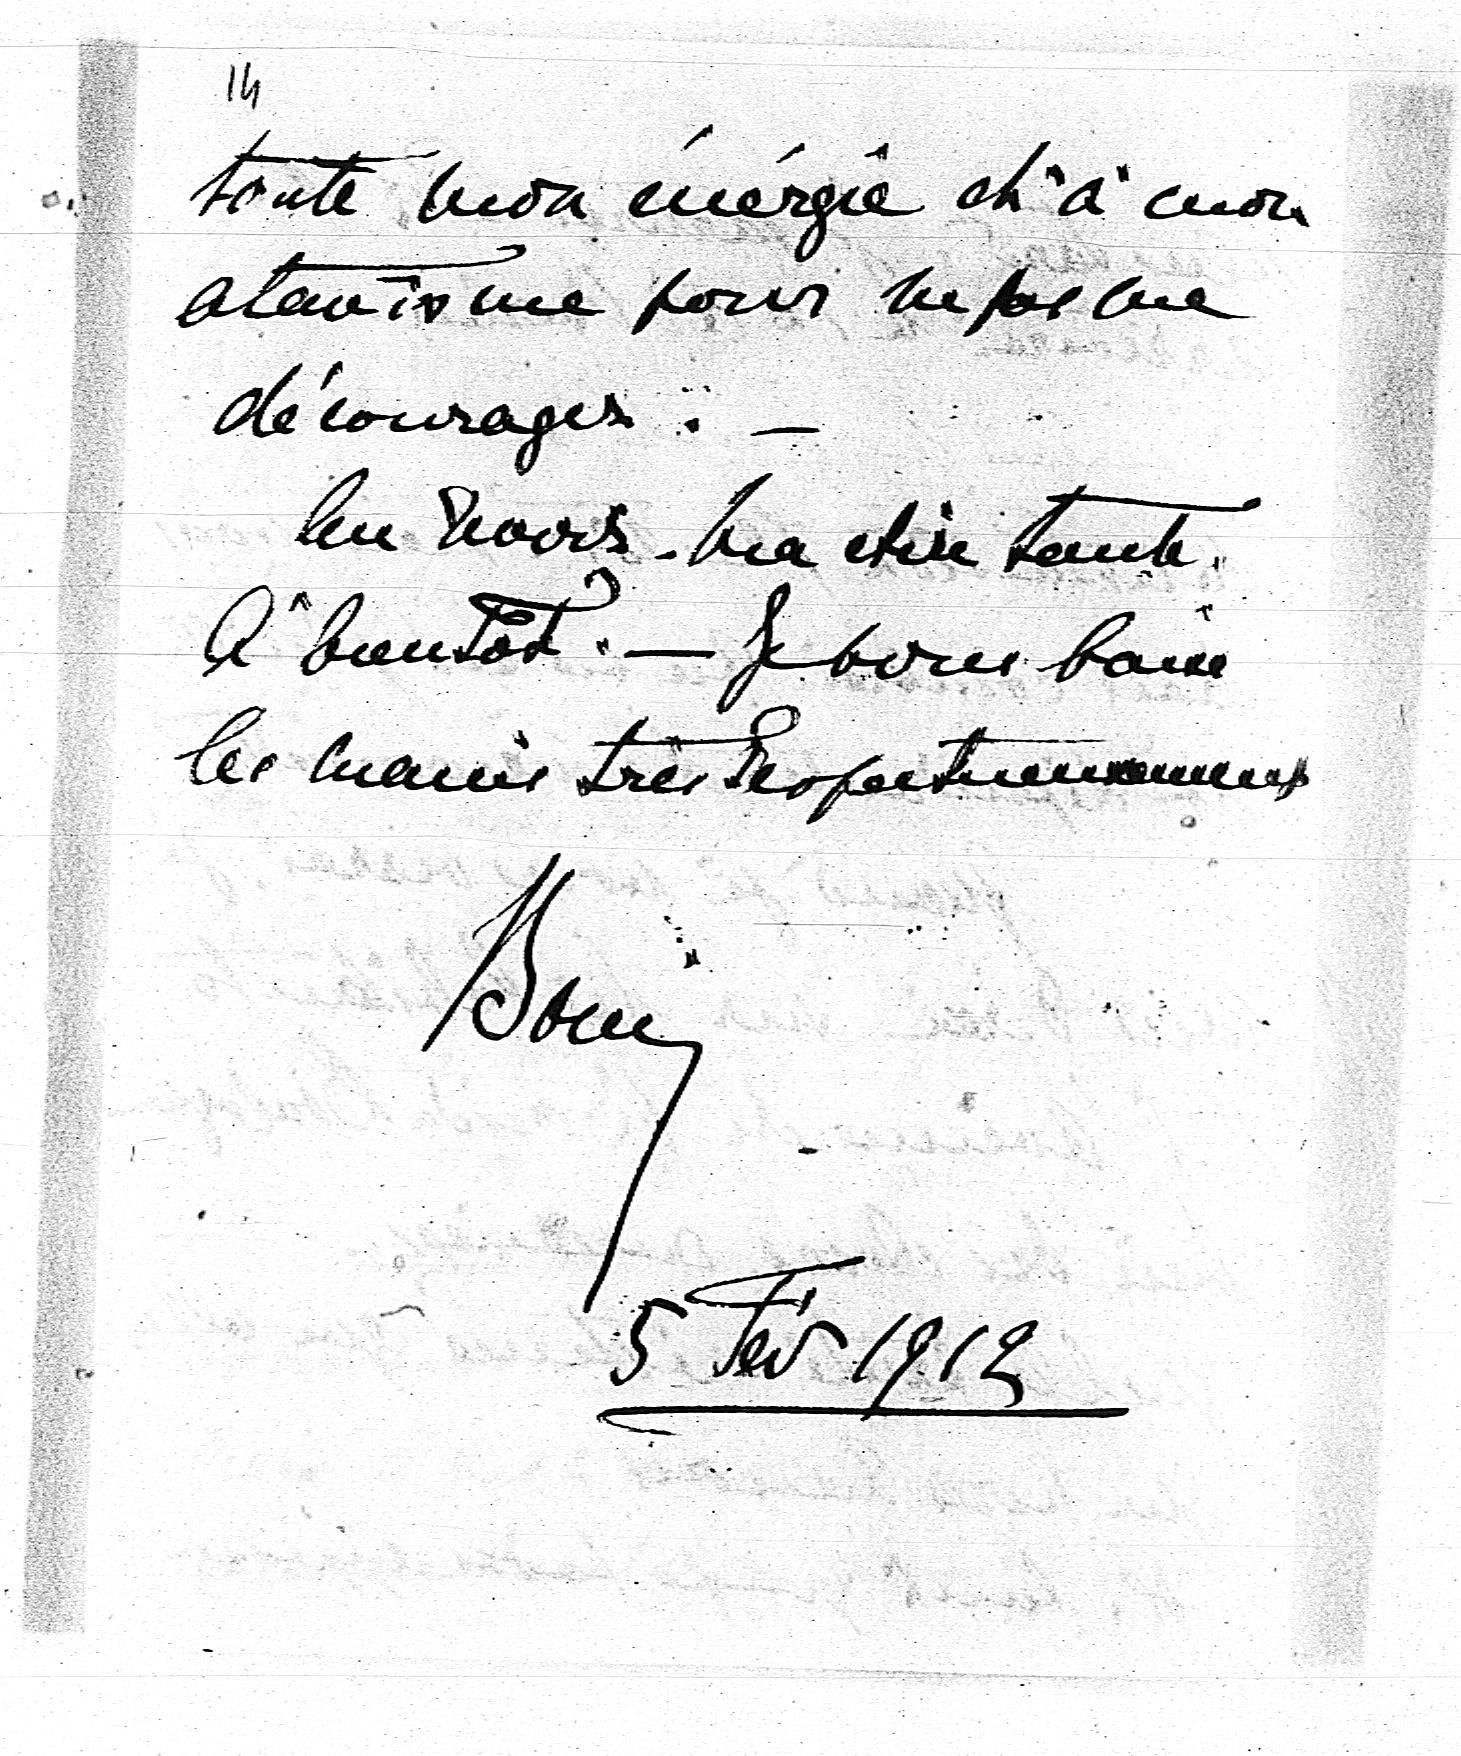 14
toute mon énérgie et à mon
atavisme pour ne pas me
décourager. —
Au revoir. Ma chère tante.
À bientôt. — Je vous baise
les mains très respectueusement
5 Fév 1912